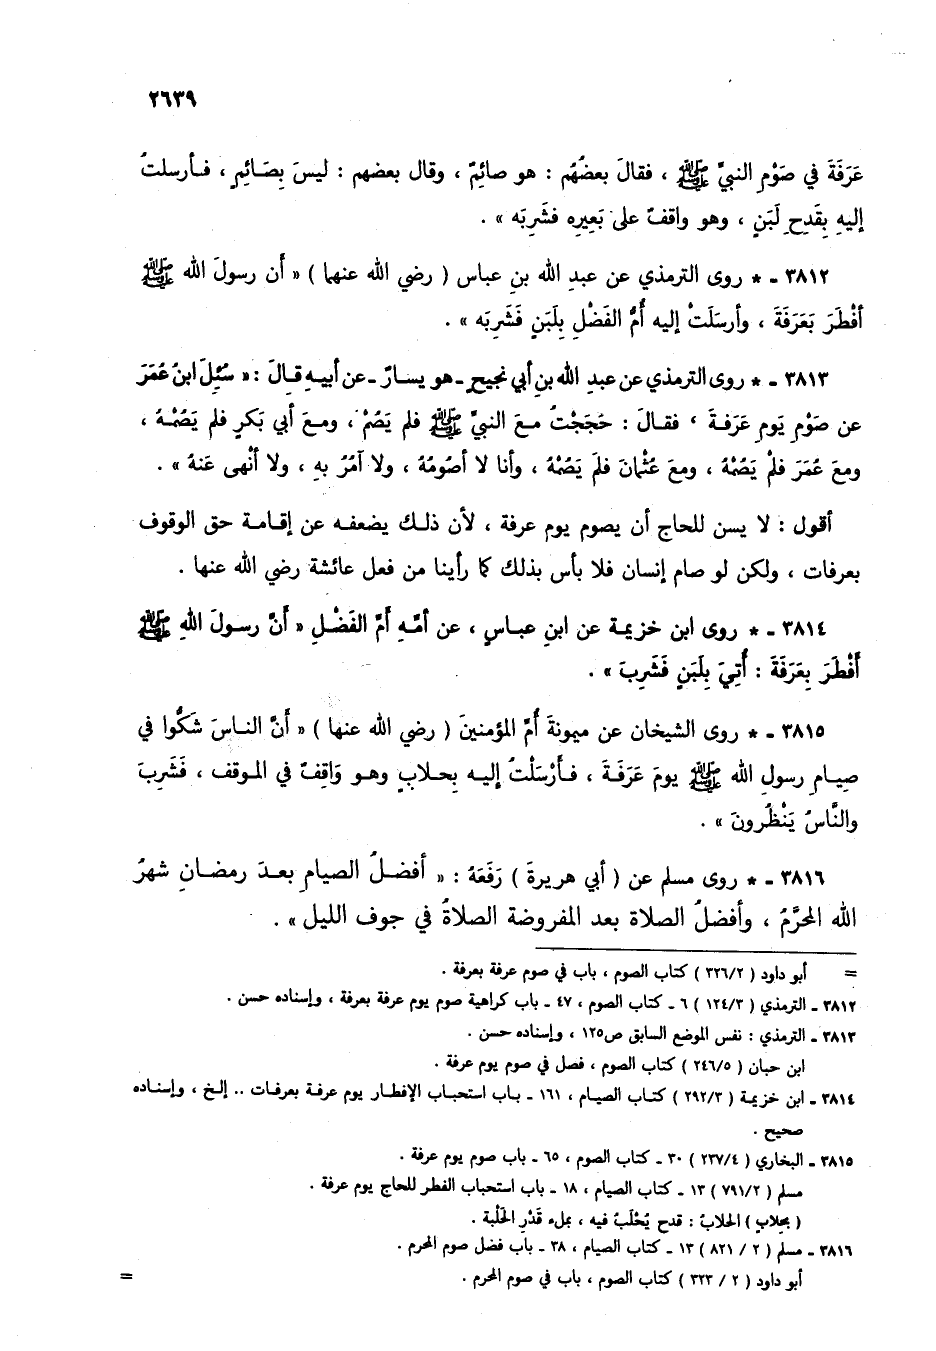 ٢٦٣٩
عَرَفَةَ في صَوْمِ النبيِّ ﷺ ، فقالَ بعضُهُم : هو صائِمٌ ، وقال بعضهم : ليسَ بِصَائِمٍ ، فـأرسلتُ
إليهِ بِقَدحِ لَبَنٍ ، وهو واقفٌ على بَعيرِه فشَرِبَه » .
٣٨١٢ - * روى الترمذي عن عبدِ الله بنِ عباس ( رضي الله عنهما ) « أن رسولَ الله ﷺ
أَفْطَرَ بَعَرَفَةَ ، وأرسَلَتْ إليه أُمُّ الفَضْلِ بِلَبَنٍ فَشَرِبَه » .
٣٨١٣ - * روى الترمذي عن عبدِ الله بنِ أبي نجيحٍ - هو يسارٌ - عن أبيهِ قالَ : « سُئِلَ ابنُ عُمَرَ
عن صَوْمِ يَومِ عَرَفـةَ ، فقـالَ : حَجَجْتُ مـعَ النبيِّ ﷺ فلم يَصُمْ ، ومـعَ أبي بَكرٍ فلم يَصُمْـهُ ،
ومعَ عُمَرَ فلَمْ يَصُمْهُ ، ومعَ عُثْمانَ فلَم يَصُمْهُ ، وأنا لا أصُومُهُ ، ولا آمُرُ بهِ ، ولا أنْهى عَنهُ » .
أقول : لا يسن للحاج أن يصوم يوم عرفة ، لأن ذلـك يضعفـه عن إقـامـة حق الوقوف
بعرفات ، ولكن لو صام إنسان فلا بأس بذلك كما رأينا من فعل عائشة رضي الله عنها .
٣٨١٤ - * روى ابن خزيمة عن ابنِ عبـاسٍ ، عن أمّـهِ أمِّ الفَضْلِ « أنَّ رسـولَ اللهِ ﷺ
أَفْطَرَ بِعَرَفَةَ : أُتِيَ بِلَبَنٍ فَشَرِبَ » .
٣٨١٥ - * روى الشيخان عن ميونةَ أُمِّ المؤمنينَ ( رضي الله عنها ) « أَنَّ النـاسَ شَكُّوا في
صِيـامِ رسولِ الله ﷺ يومَ عَرَفَةَ ، فـأَرْسَلْتُ إليـه بِحلابٍ وهـو وَاقِفٌ في المـوقف ، فَشَرِبَ
والنَّاسُ يَنْظُرونَ » .
٣٨١٦ - * روى مسلم عن ( أبي هريرةَ ) رَفَعَهُ : « أفضـلُ الصيـامِ بعـدَ رمضـانِ شهرُ
الله المحرَّمُ ، وأفضلُ الصلاة بعد المفروضة الصلاةُ في جوف الليل » .
= أبو داود ( ٣٢٦/٢ ) كتاب الصوم ، باب في صوم عرفة بعرفة .
٣٨١٢ - الترمذي ( ١٢٤/٣ ) ٦ - كتاب الصوم ، ٤٧ - باب كراهية صوم يوم عرفة بعرفة ، وإسناده حسن .
٣٨١٣ - الترمذي : نفس الموضع السابق ص١٢٥ ، وإسناده حسن .
ابن حبان ( ٢٤٦/٥ ) كتاب الصوم ، فصل في صوم يوم عرفة .
٣٨١٤ - ابن خزيمة ( ٢٩٢/٣ ) كتـاب الصيـام ، ١٦١ - بـاب استحبـاب الإفطـار يوم عرفـة بعرفـات .. إلـخ ، وإسنـاده
صحيح .
٣٨١٥ - البخاري ( ٢٣٧/٤ ) ٣٠ - كتاب الصوم ، ٦٥ - باب صوم يوم عرفة .
مسلم ( ٧٩١/٢ ) ١٣ - كتاب الصيام ، ١٨ - باب استحباب الفطر للحاج يوم عرفة .
( بِحِلابٍ ) الحلابُ : قدح يُحْلَبُ فيه ، بملء قَدْرِ الحَلْبة .
٣٨١٦ - مسلم ( ٢ / ٨٢١ ) ١٣ - كتاب الصيام ، ٣٨ - باب فضل صوم المحرم .
أبو داود ( ٢ / ٣٢٣ ) كتاب الصوم ، باب في صوم المحرم . =